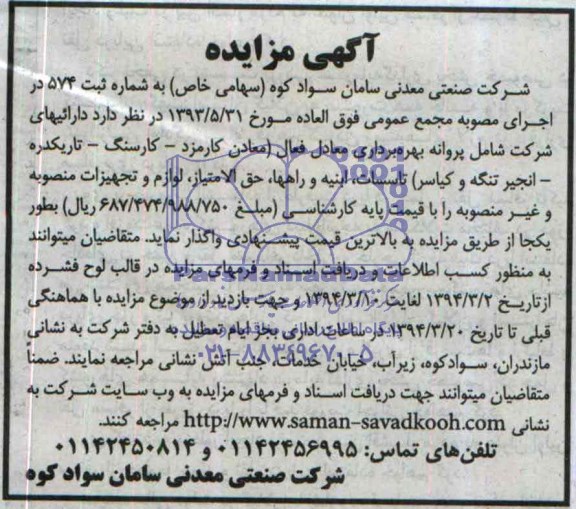 آگهی مزایده
شرکت صنعتی معدنی سامان سواد کوه (سهامی خاص) به شماره ثبت ۵۷۴ در
اجرای مصوبه مجمع عمومی فوق العاده مورخ ۱۳۹۳/۵/۳۱ در نظر دارد دارائیهای
شرکت شامل پروانه بهره‌برداری معادل فعال (معادن کارمزد – کارسنگ – تاریکدره
– انجیر تنگه و کیاسر) تاسیسات، ابنیه و راهها، حق الامتیاز، لوازم و تجهیزات منصوبه
و غیر منصوبه را با قیمت پایه کارشناسی (مبلغ ۶۸۷/۴۷۴/۹۸۸/۷۵۰ ریال) بطور
یکجا از طریق مزایده به بالاترین قیمت پیشنهادی واگذار نماید. متقاضیان میتوانند
به منظور کسب اطلاعات و دریافت اسناد و فرمهای مزایده در قالب لوح فشرده
از تاریخ ۱۳۹۴/۳/۲ لغایت ۱۳۹۴/۳/۱۰ و جهت بازدید از موضوع مزایده با هماهنگی
قبلی تا تاریخ ۱۳۹۴/۳/۲۰ در ساعات اداری بجز ایام تعطیل به دفتر شرکت به نشانی
مازندران، سوادکوه، زیرآب، خیابان خدمات، جنب آتش نشانی مراجعه نمایند. ضمناً
متقاضیان میتوانند جهت دریافت اسناد و فرمهای مزایده به وب سایت شرکت به
نشانی http://www.saman-savadkooh.com مراجعه کنند.
تلفن‌های تماس: ۰۱۱۴۲۴۵۶۹۹۵ و ۰۱۱۴۲۴۵۰۸۱۴
شرکت صنعتی معدنی سامان سواد کوه
ParsNamadData
۰۲۱-۸۸۳۴۹۶۷۰-۵